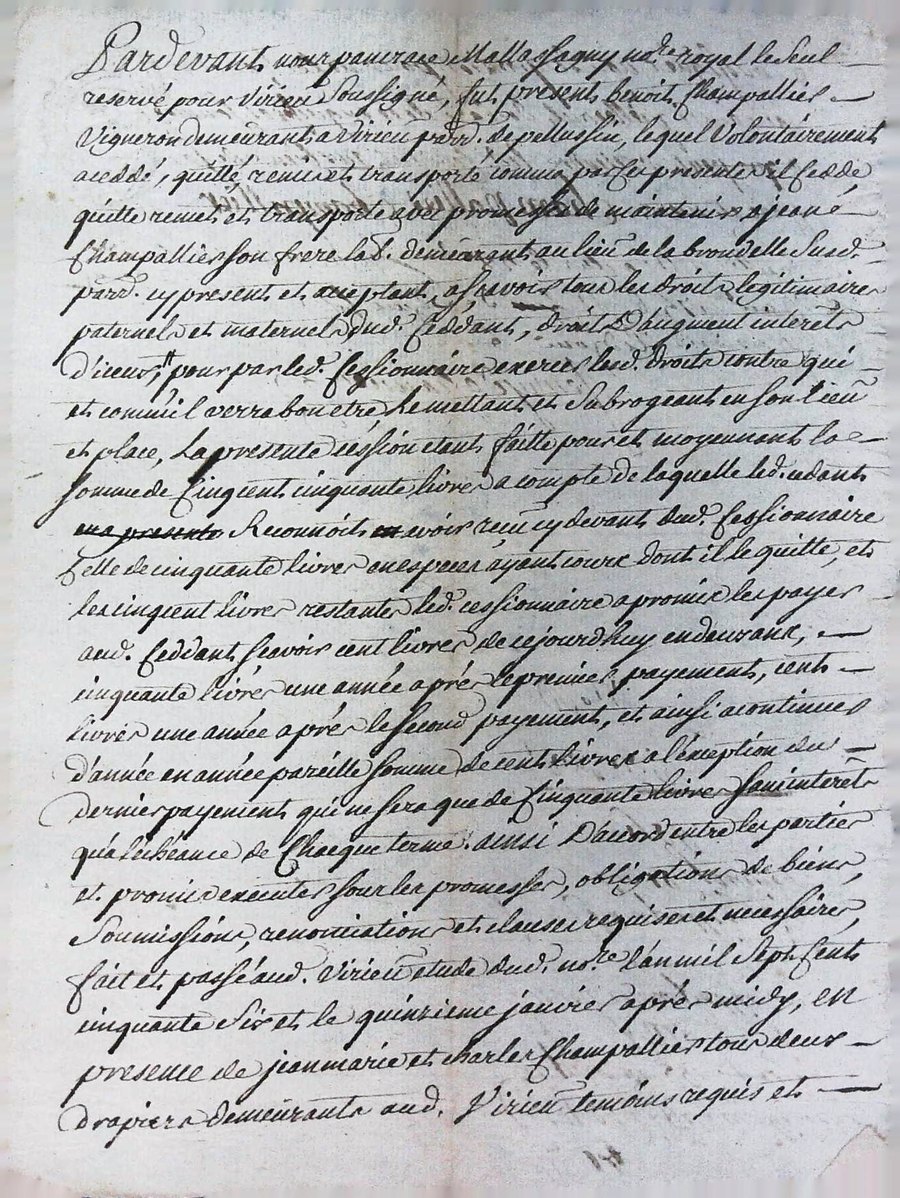 Pardevant nous pancrace Mallassagny no.re royal le Seul
reservé pour Virieu Soussigné, fut present benoit Champallier
Vigneron demeurant a Virieu parr. de pellussin, lequel Volontairement
a ceddé, quitté remis et transporté comme par ces presentes il cedde
quitte remet et transporte avec promesse de maintenir a jean
Champallier son frere lad. demeurant au lieu de la brondelle Susd.
parr. cy present et acceptant, a sçavoir tous les droits legitimaires
paternels et maternels dud. Ceddant, droit D'augment interêts
D'iceux, pour par led. Cessionnaire exercer lesd. droits contre qui
et comme il verra bon etre Le mettant et Subrogeant en son lieu
et place, La presente cession etant faitte pour et moyennant la
somme de Cinq cent cinquante livres a compte de laquelle led. cedant
Reconnoit avoir reçu cy devant dud. Cessionnaire
Celle de cinquante livres en especes ayent cours dont il le quitte, et
les cinq cent livres restantes led. cessionnaire a promis les payer
aud. Ceddant sçavoir cent livres de cejourdhuy en deux ans,
cinquante livres une année aprés le premier payement, cent
livres une année aprés le second payement, et ainsi a continuer
d'année en année pareille somme de cent livres a l'éxception du
dernier payement qui ne sera que de Cinquante livres sans interêts
qu'a l'échéance de Chacque terme. ainsi D'accord entre les parties
et promis executer sous les promesses, obligations de biens,
Soumissions, renonciations et clauses requises et necessaires,
fait et passé aud. Virieu etude dud. no.re L'an mil Sept Cent
cinquante Six et le quinzieme janvier aprés midy, en
presence de jean marie et charles Champallier tous deux
drapiers demeurants aud. Virieu temoins requis et